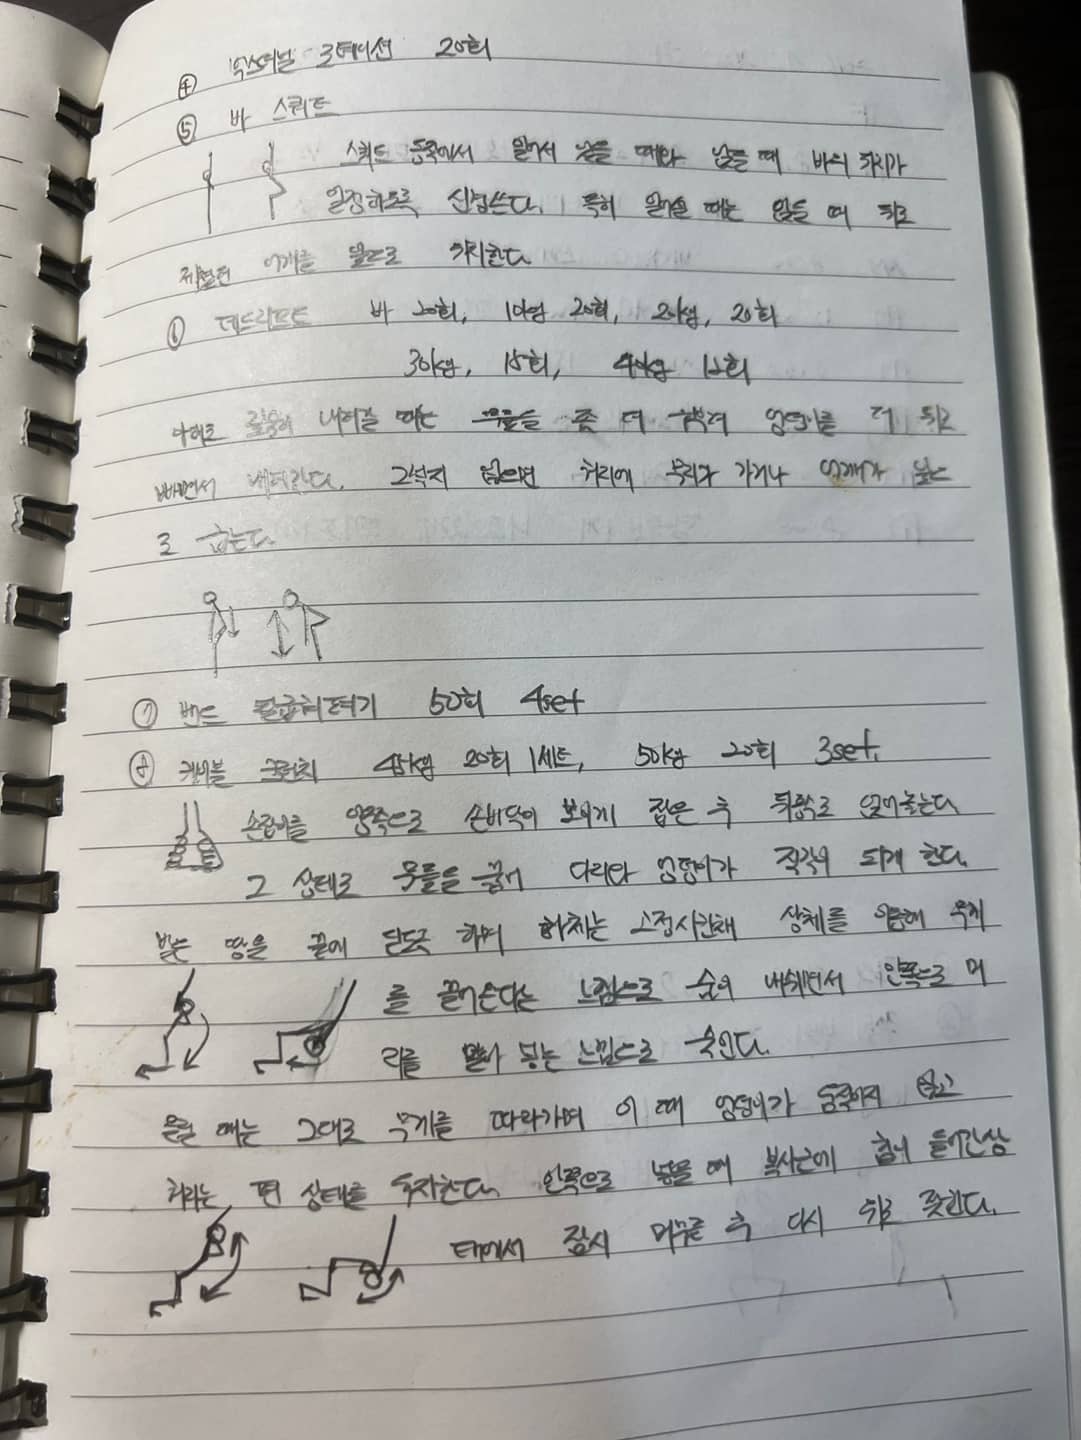 ④ 익스터널 로테이션 20회
⑤ 바 스쿼트
스쿼드 동작에서 일어서 있을 때와 앉을 때 바의 위치가
일정하도록 신경쓴다. 특히 일어설 때는 앉을 때 뒤로
어깨를 앞으로 위치한다.
⑥ 데드리프트 바 20회, 10kg 20회, 20kg, 20회
30kg, 15회, 40kg 12회
아래로 내려갈 때는 무릎을 좀 더 굽혀 엉덩이를 더 뒤로
빼면서 내려간다. 그렇지 않으면 허리에 무리가 가거나 어깨가 앞으
로 굽는다.
⑦ 밴드 팔굽혀펴기 50회 4set
⑧ 케이블 크런치 45kg 20회 1세트, 50kg 20회 3set.
손잡이를 양쪽으로 손바닥이 보이게 잡은 후 뒤쪽으로
그 상태로 무릎을 꿇어 다리와 엉덩이가 직각이 되게 한다.
발은 땅을 끝에 닫듯 하며 하체는 고정시킨채 상체를 이용해 무게
를 끌어온다는 느낌으로 숨을 내쉬면서 안쪽으로 머
리를 말아 넣는 느낌으로 숙인다.
올릴 때는 그대로 무게를 따라가며 이 때 엉덩이가 움직이지 않고
허리는 편 상태를 유지한다. 안쪽으로 넣을 때 복사근에 힘이 들어간상
태에서 잠시 머무른 후 다시 뒤로 풋한다.